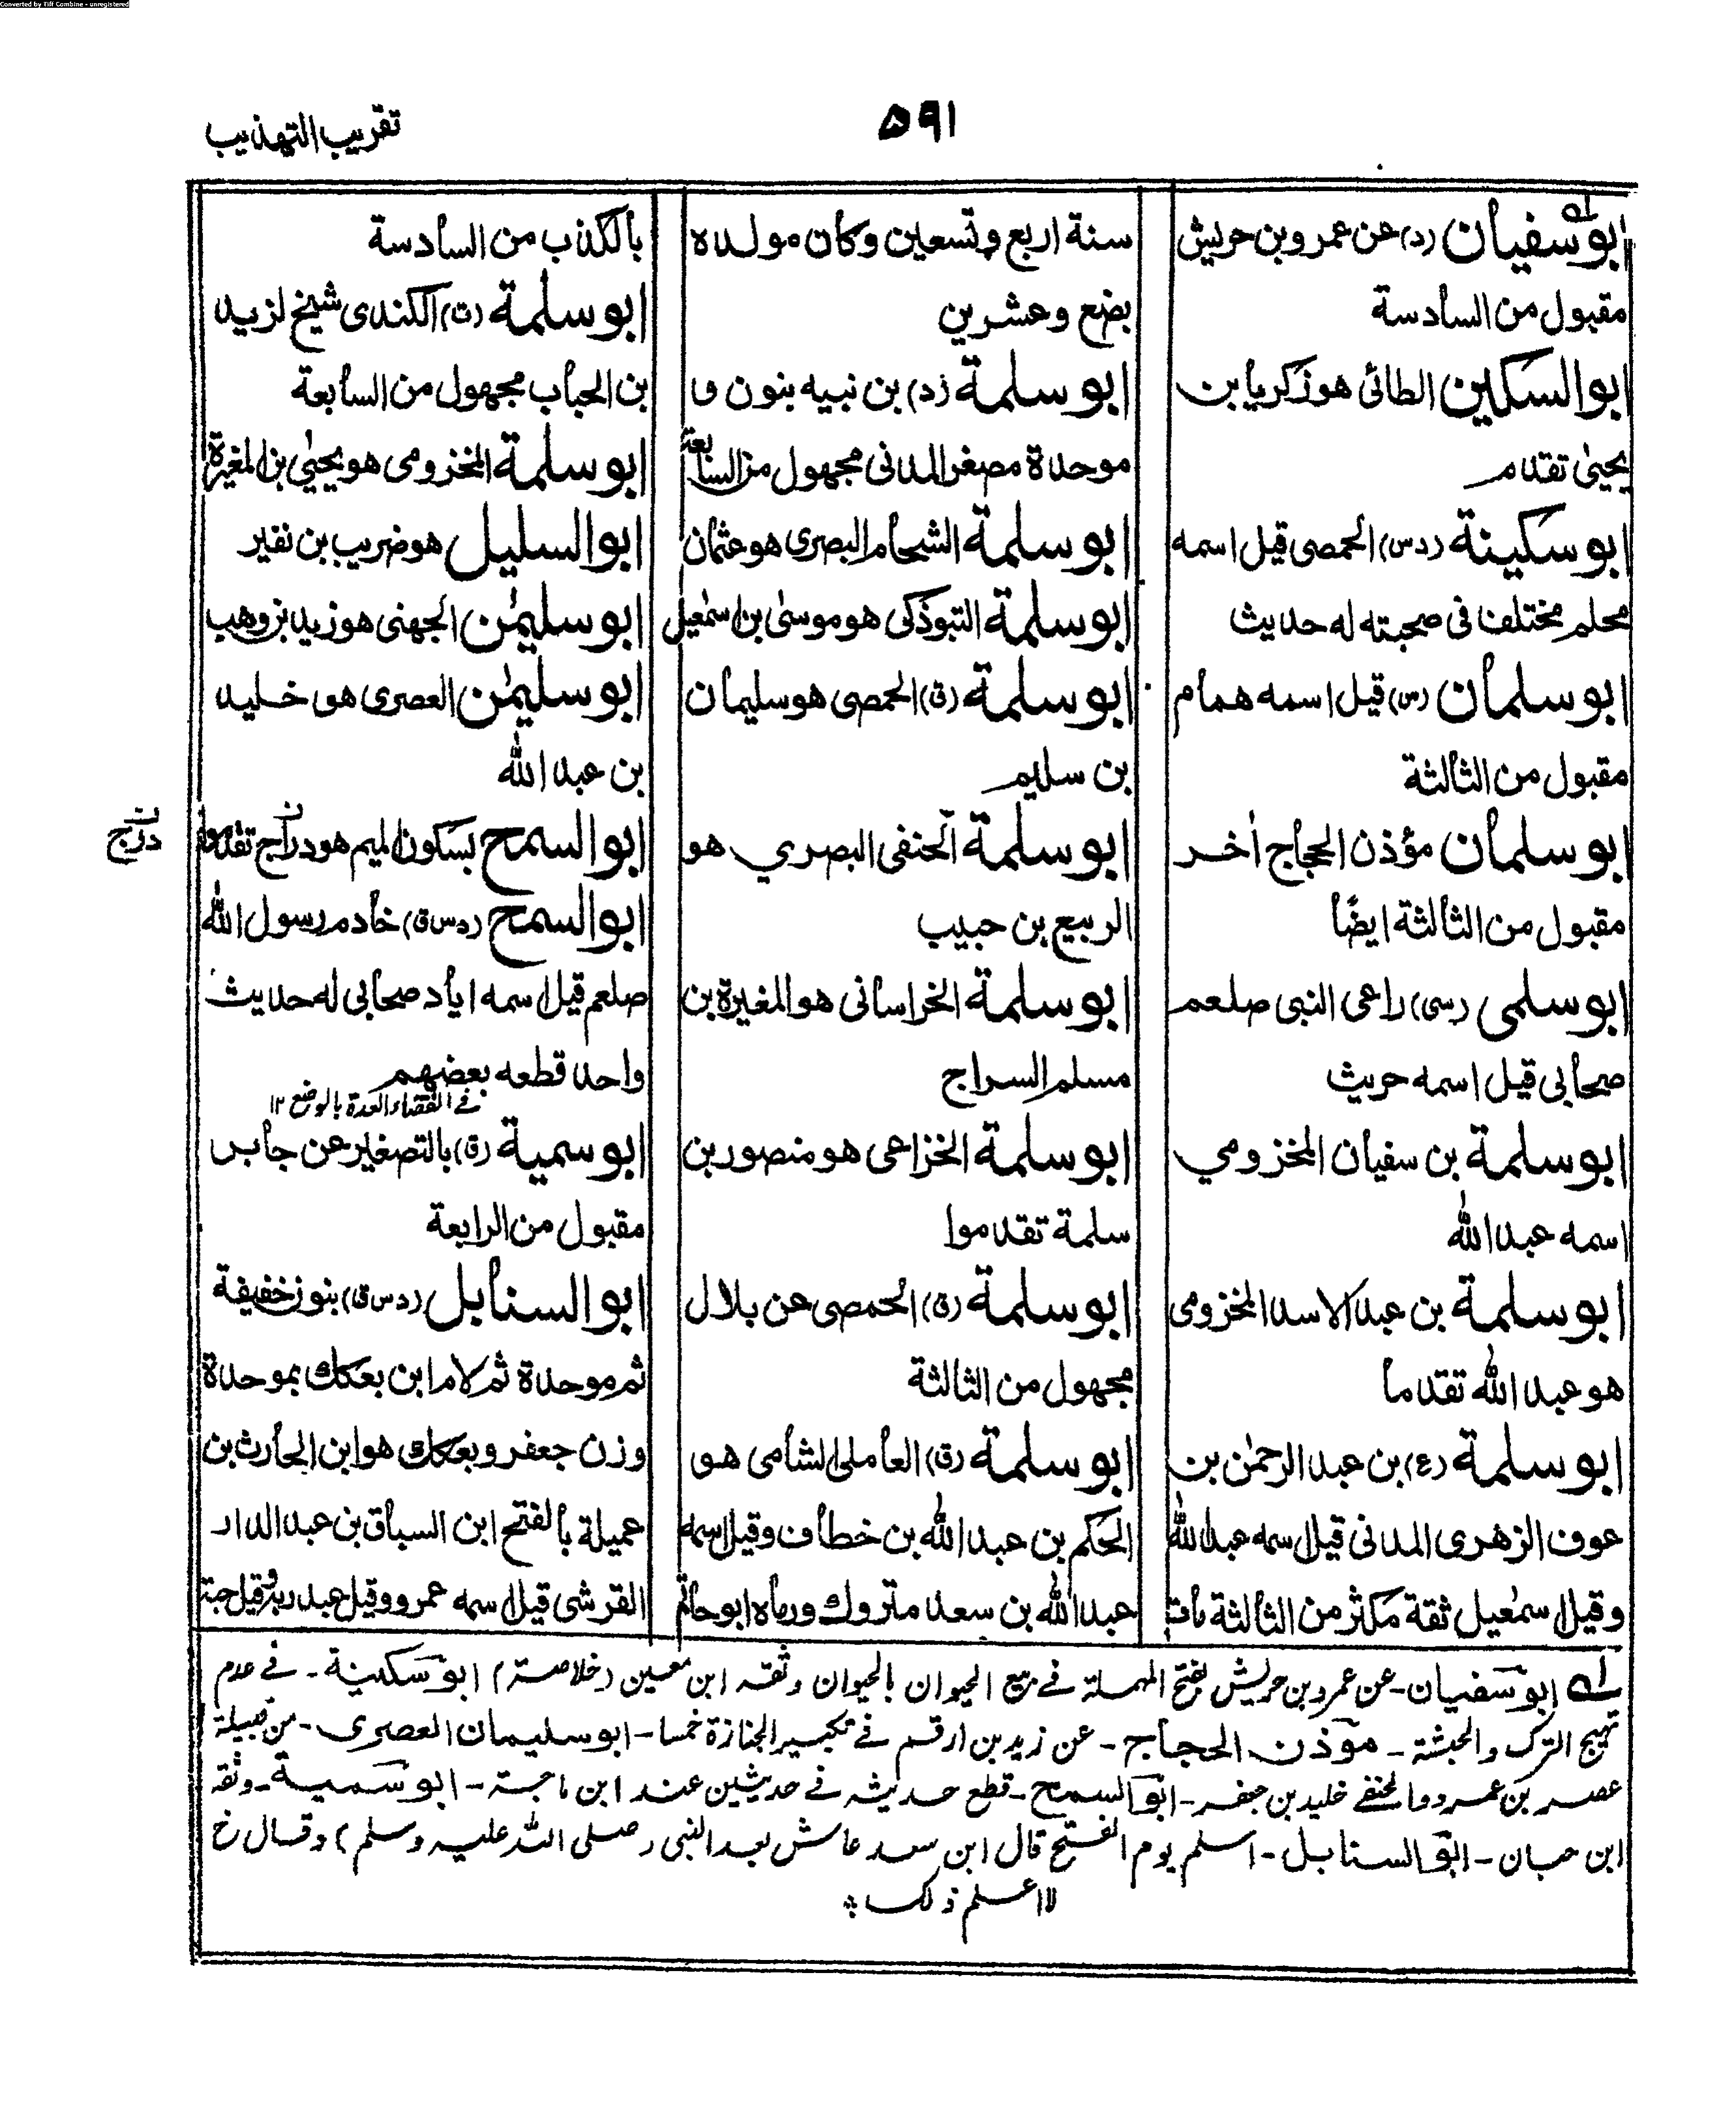 Converted by Tiff Combine - unregistered
٥٩١
تقريب التهذيب
ابو سفيان (د) عن عمرو بن حريش
مقبول من السادسة
ابو السكين الطائى هو زكريا بن
يحيىٰ تقدم
ابو سكينة (دس) الحمصى قيل اسمه
محلم مختلف فى صحبته له حديث
ابو سلمان (س) قيل اسمه همام
مقبول من الثالثة
ابو سلمان مؤذن الحجاج اٰخر
مقبول من الثالثة ايضًا
ابو سلمى (سى) راعى النبى صلعم
صحابى قيل اسمه حريث
ابو سلمة بن سفيان المخزومي
اسمه عبد الله
ابو سلمة بن عبد الاسد المخزومى
هو عبد الله تقدما
ابو سلمة (ع) بن عبد الرحمٰن بن
عوف الزهرى المدنى قيل اسمه عبد الله
وقيل اسمٰعيل ثقة مكثر من الثالثة مات
سنة اربع وتسعين وكان مولده
بضع وعشرين
ابو سلمة (د) بن نبيه بنون و
موحدة مصغر المدنى مجهول من السابعة
ابو سلمة الشحام البصرى هو عثمان
ابو سلمة التبوذكى هو موسىٰ بن اسمٰعيل
ابو سلمة (ق) الحمصى هو سليمان
بن سليم
ابو سلمة الحنفى البصري هو
الربيع بن حبيب
ابو سلمة الخراسانى هو المغيرة بن
مسلم السراج
ابو سلمة الخزاعى هو منصور بن
سلمة تقدموا
ابو سلمة (ق) الحمصى عن بلال
مجهول من الثالثة
ابو سلمة (ق) العاملى الشامى هو
الحكم بن عبد الله بن خطاف وقيل اسمه
عبد الله بن سعد متروك ورماه ابو حاتم
بالكذب من السادسة
ابو سلمة (ت) الكندى شيخ لزيد
بن الحباب مجهول من السابعة
ابو سلمة المخزومى هو يحيىٰ بن المغيرة
ابو السليل هو ضريب بن نقير
ابو سليمٰن الجهنى هو زيد بن وهب
ابو سليمٰن العصرى هو خليد
بن عبد الله
ابو السمح بسكون الميم هو دراج تقدموا
دراج
ابو السمح (دس ق) خادم رسول الله
صلعم قيل اسمه اياد صحابى له حديث
واحد قطعه بعضهم
ابو سمية (ق) بالتصغير عن جابر
مقبول من الرابعة
ابو السنابل (دس ق) بنون خفيفة
ثم موحدة ثم لام ابن بعكك بموحدة
وزن جعفر وبعكك هو ابن الحارث بن
عميلة بالفتح ابن السباق بن عبد الدار
القرشى قيل اسمه عمرو وقيل عبد ربه وقيل حبة
له ابو سفيان - عن عمرو بن حريش بفتح المهملة في بيع الحيوان بالحيوان وثقه ابن معين (خلاصة) ابو سكينة - في عدم
تهييج الترك والحبشة - مؤذن الحجاج - عن زيد بن ارقم في تكبير الجنازة خمسا - ابو سليمان العصرى - من قبيلة
عصر بن عمرو والحنفي خليد بن جعفر - ابو السمح - قطع حديثه في حديثين عند ابن ماجة - ابو سمية - وثقه
ابن حبان - ابو السنابل - اسلم يوم الفتح قال ابن سعد عاش بعد النبى (صلى الله عليه وسلم) وقال خ
لا اعلم ذلك